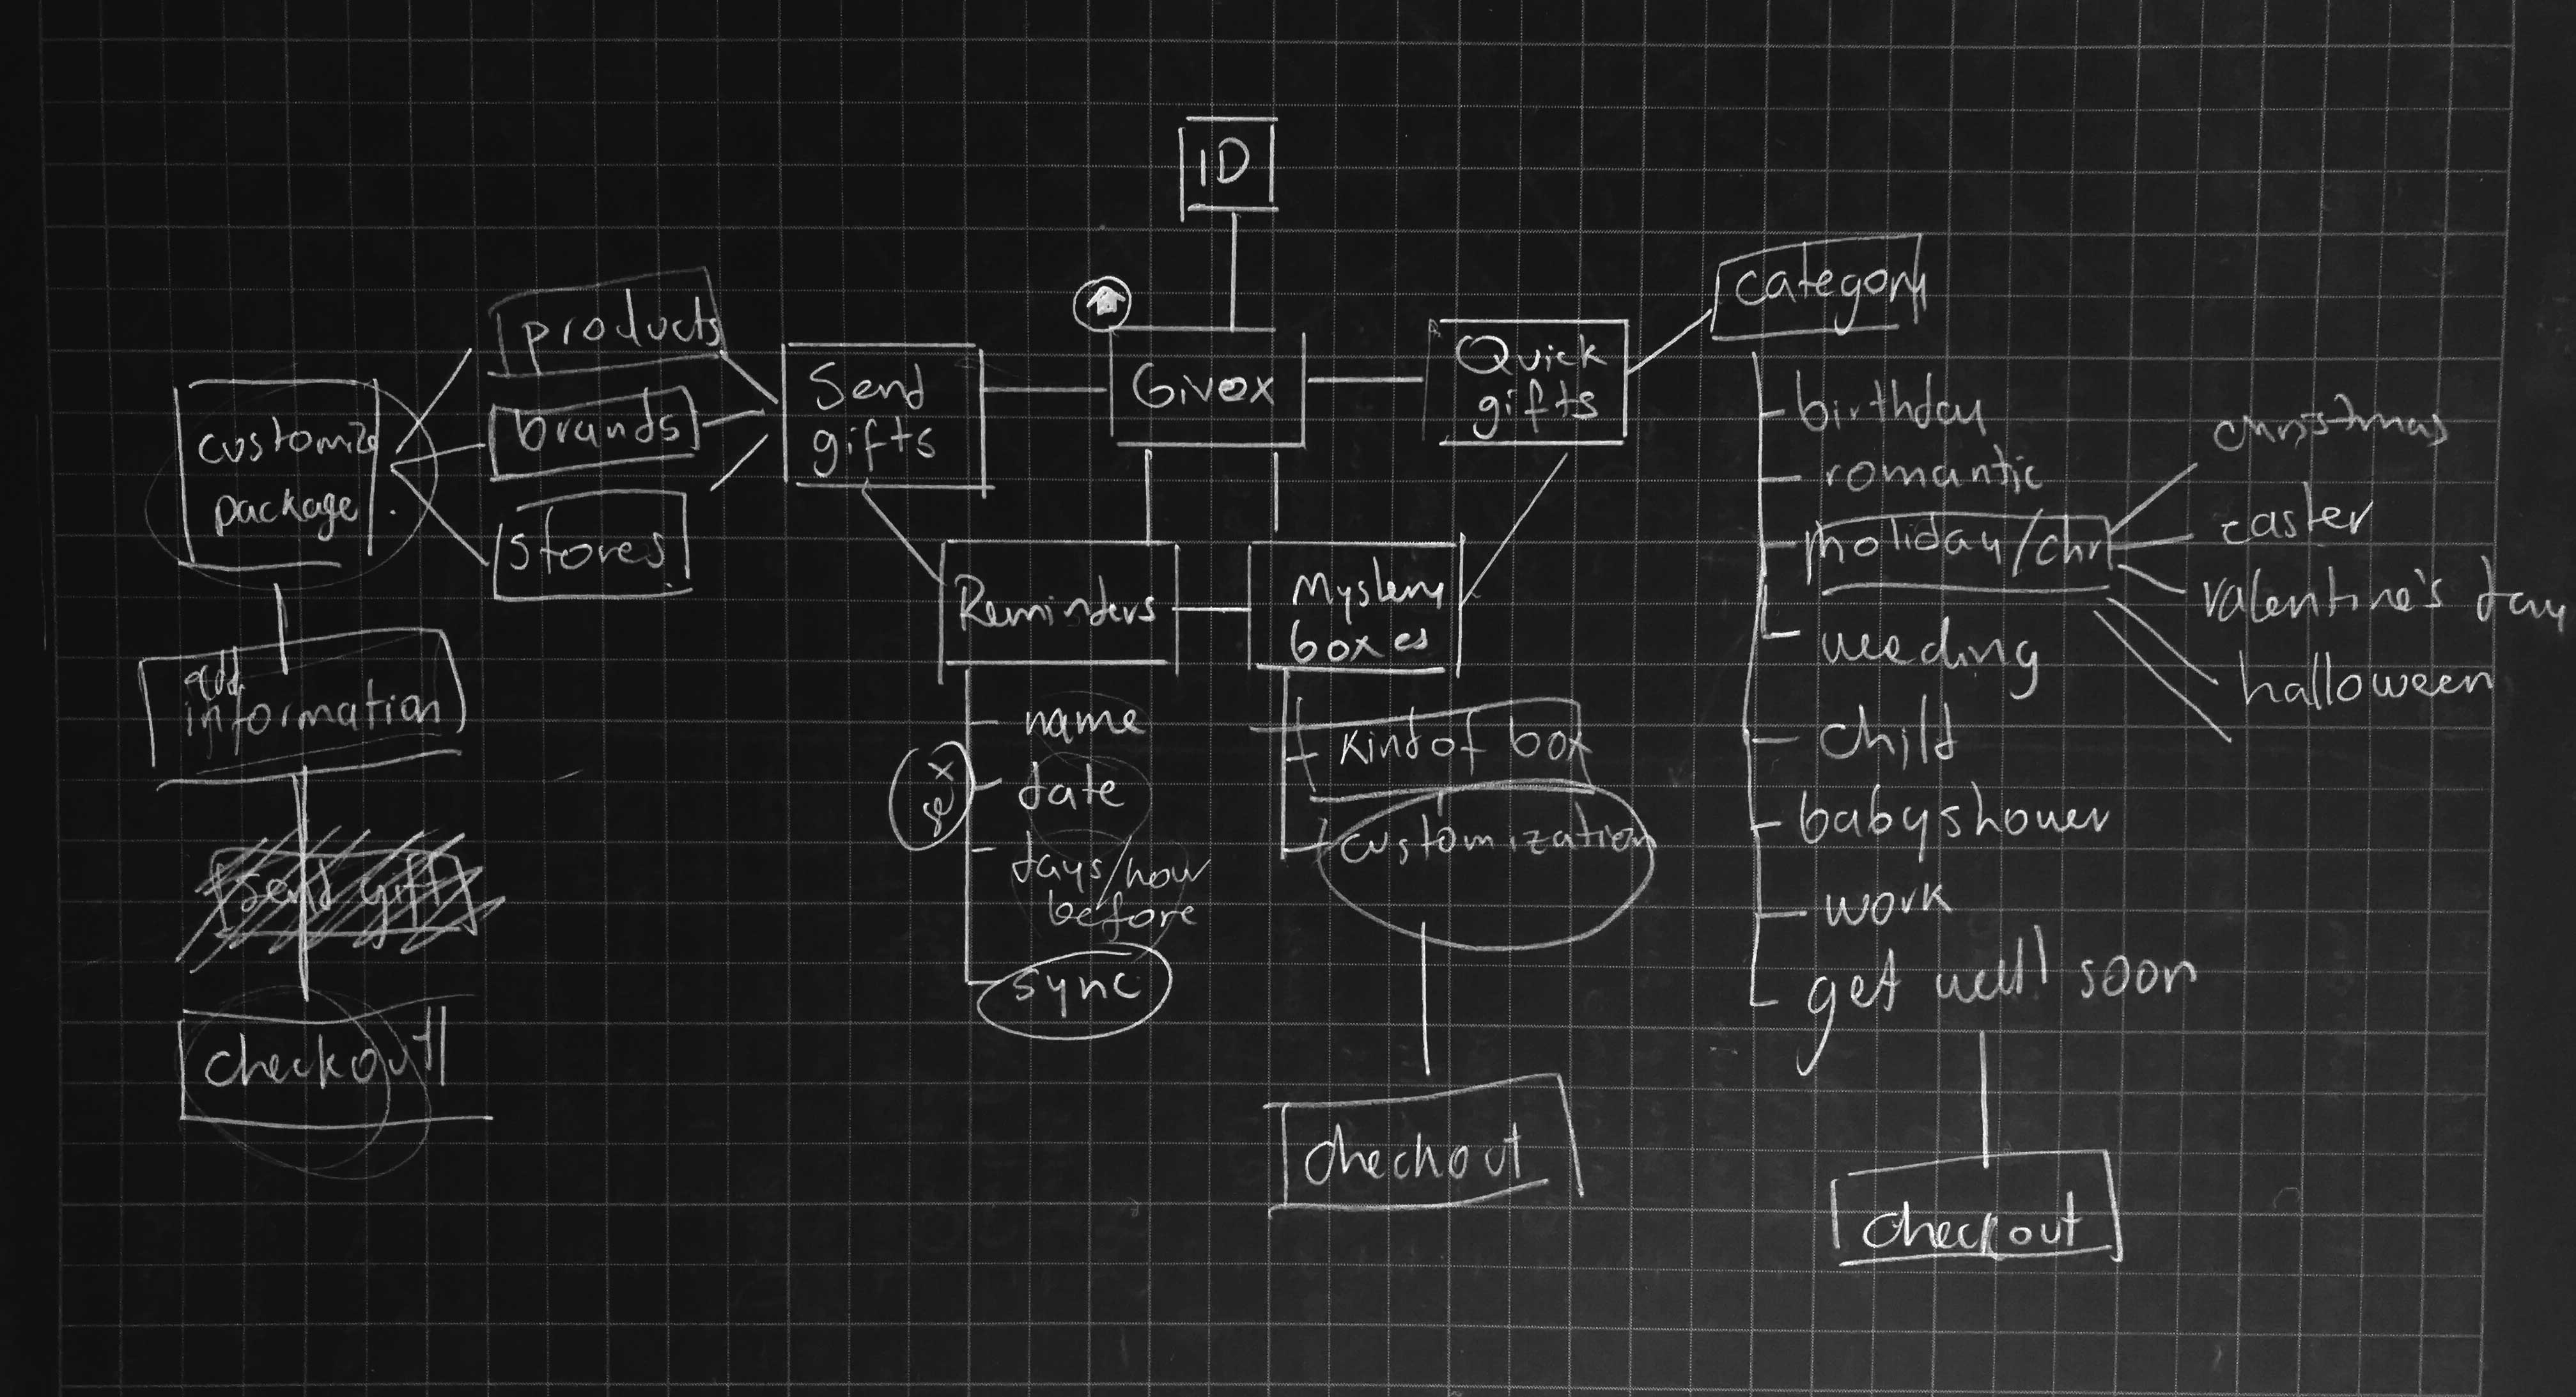 ID
category
products
Send
gifts
Givex
Quick
gifts
brands
customize
package
stores
birthday
romantic
holiday/chr
weeding
child
babyshower
work
get well soon
christmas
easter
valentine's day
halloween
Reminders
Mystery
boxes
add
information
name
date
days/hour
before
sync
Kind of box
customization
send gift
checkout
checkout
checkout